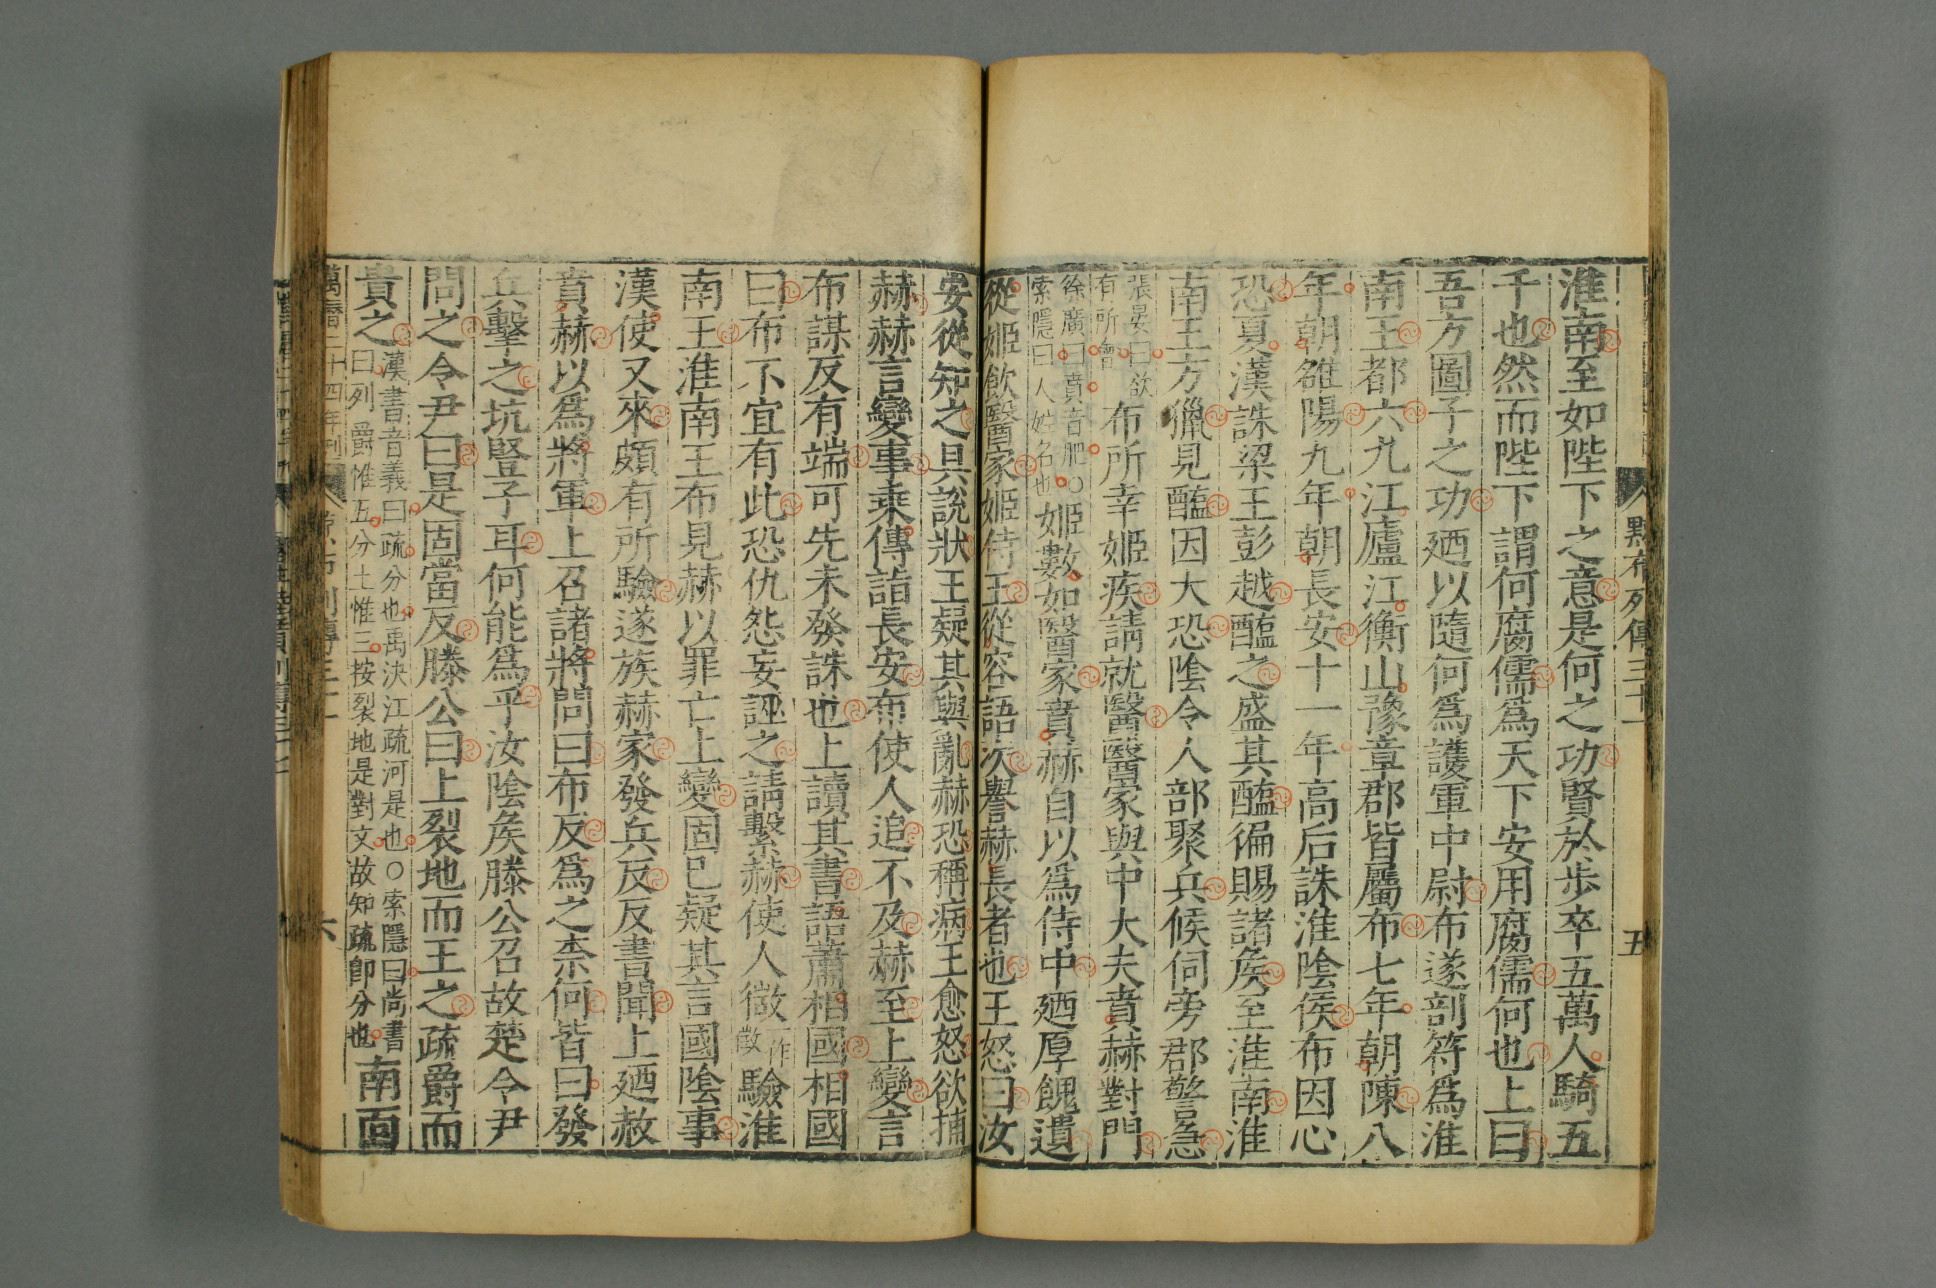 黥布列傳三十一
五
淮南至如陛下之意是何之功賢於步卒五萬人騎五
千也然而陛下謂何腐儒爲天下安用腐儒何也上曰
吾方圖子之功廼以隨何爲護軍中尉布遂剖符爲淮
南王都六九江廬江衡山豫章郡皆屬布七年朝陳八
年朝雒陽九年朝長安十一年高后誅淮陰侯布因心
恐夏漢誅梁王彭越醢之盛其醢徧賜諸矦至淮南淮
南王方獵見醢因大恐陰令人部聚兵候伺旁郡警急
張晏曰欲
有所會
布所幸姬疾請就醫醫家與中大夫賁赫對門
徐廣曰賁音肥○
索隱曰人姓名也
姬數如醫家賁赫自以爲侍中廼厚餽遺
從姬飲醫家姬侍王從容語次譽赫長者也王怒曰汝
安從知之具說狀王疑其與亂赫恐稱病王愈怒欲捕
赫赫言變事乘傳詣長安布使人追不及赫至上變言
布謀反有端可先未發誅也上讀其書語蕭相國相國
曰布不宜有此恐仇怨妄誣之請繫赫使人微
一作
徵
驗淮
南王淮南王布見赫以罪亡上變固已疑其言國陰事
漢使又來頗有所驗遂族赫家發兵反反書聞上廼赦
賁赫以爲將軍上召諸將問曰布反爲之柰何皆曰發
兵擊之坑豎子耳何能爲乎汝陰矦滕公召故楚令尹
問之令尹曰是固當反滕公曰上裂地而王之疏爵而
貴之
漢書音義曰疏分也禹決江疏河是也○索隱曰尚書
曰列爵惟五分土惟三按裂地是對文故知疏卽分也
南面
萬曆二十四年刊
六